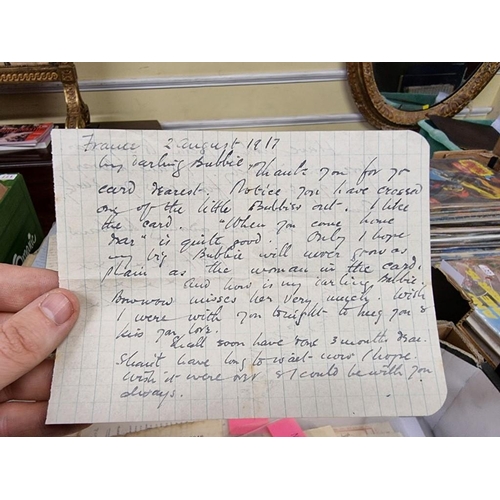 France 2 August 1917
My darling Bubbie, Thank you for yr
card dearest. Notice you have crossed
one of the little Bubbies out. I like
the card. "When you come home
Dear" is quite good. Only I hope
my big Bubbie will never grow as
plain as the woman in the card.
And how is my darling Bubbie.
Bowwow misses her very much. Wish
I were with you tonight to hug you &
kiss you, love.
Shall soon have done 3 months dear.
Shan't have long to wait now I hope.
Wish it were over & I could be with you
always.